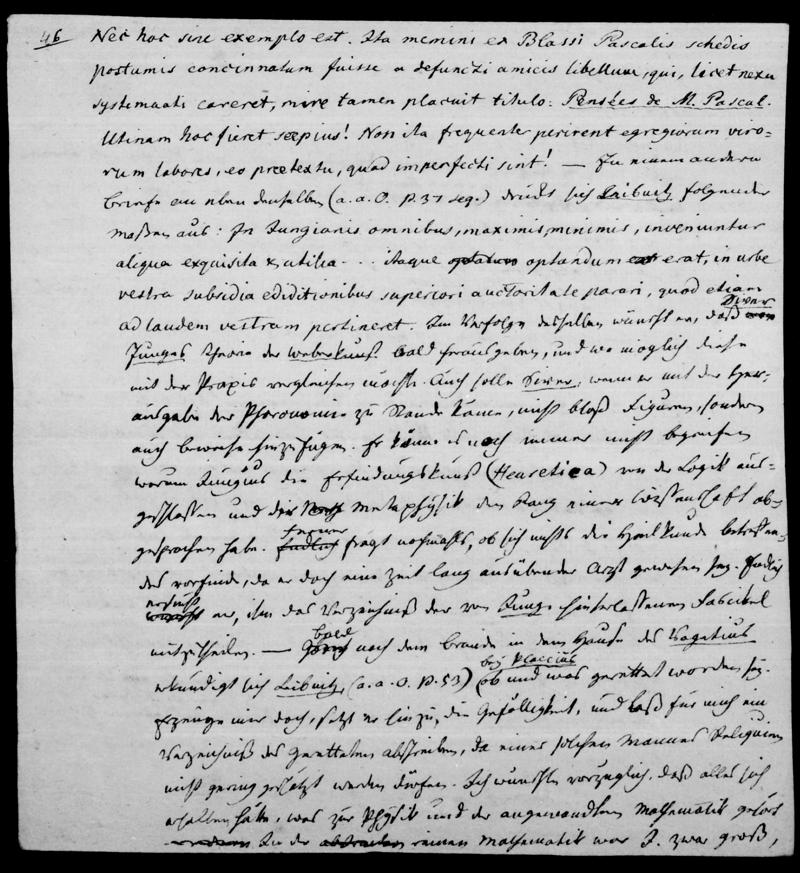 46 Nec hoc sine exemplo est. Ita memini ex Blassi Pascalis schedis
postumis concinnatum fuisse a defuncti amicis libellum, qui, licet nexu
systematis careret, mire tamen placuit titulo: Pensées de M. Pascal.
Utinam hoc fieret saepius! Non ita frequenter perirent egregiorum viro-
rum labores, eo praetextu, quod imperfecti sint! — In einem andern
Briefe an eben denselben (a. a. O. p. 37 seq.) drückt sich Leibnitz folgender
Maßen aus: In Jungianis omnibus, maximis, minimis, inveniuntur
aliqua exquisita & utilia . . . itaque optandum erat, in urbe
vestra subsidia edititionibus superiori auctoritate parari, quod etiam
ad laudem vestram pertineret. Im Verfolge desselben wünscht er, daß Siver
Jungs Theorie der Weberkunst bald herausgeben, und wo möglich diese
mit der Praxis vergleichen möchte. Auch solle Siver, wenn er mit der Her-
ausgabe der Phoronomie zu Stande käme, nicht bloß Figuren, sondern
auch Beweise hinzufügen. Er könne es noch immer nicht begreifen
warum Jungius die Erfindungskunst (Heuretica) von der Logik aus-
geschlossen und der Metaphysik den Rang einer Wissenschaft ab-
gesprochen habe. Ferner fragt nochmahls, ob sich nichts die Heilkunde betreffen-
des vorfinde, da er doch eine Zeit lang ausübender Arzt gewesen sey. Endlich
ersucht er, ihm das Verzeichniß der von Junge hinterlassenen Fascikel
mitzutheilen. — Bald nach dem Brande in dem Hause des Vagetius
erkundigt sich Leibnitz, (a. a. O. p. 53) ob und was bey Placcius gerettet worden sey.
Erzeuge mir doch, setzt er hinzu, die Gefälligkeit, und laß für mich ein
Verzeichniß des Geretteten abschreiben, da eines solchen Mannes Reliquien
nicht gering geschätzt werden dürfen. Ich wünschte vorzüglich, daß alles sich
erhalten hätte, was zur Physik und der angewandten Mathematik gehört
In der reinen Mathematik war J. zwar groß,